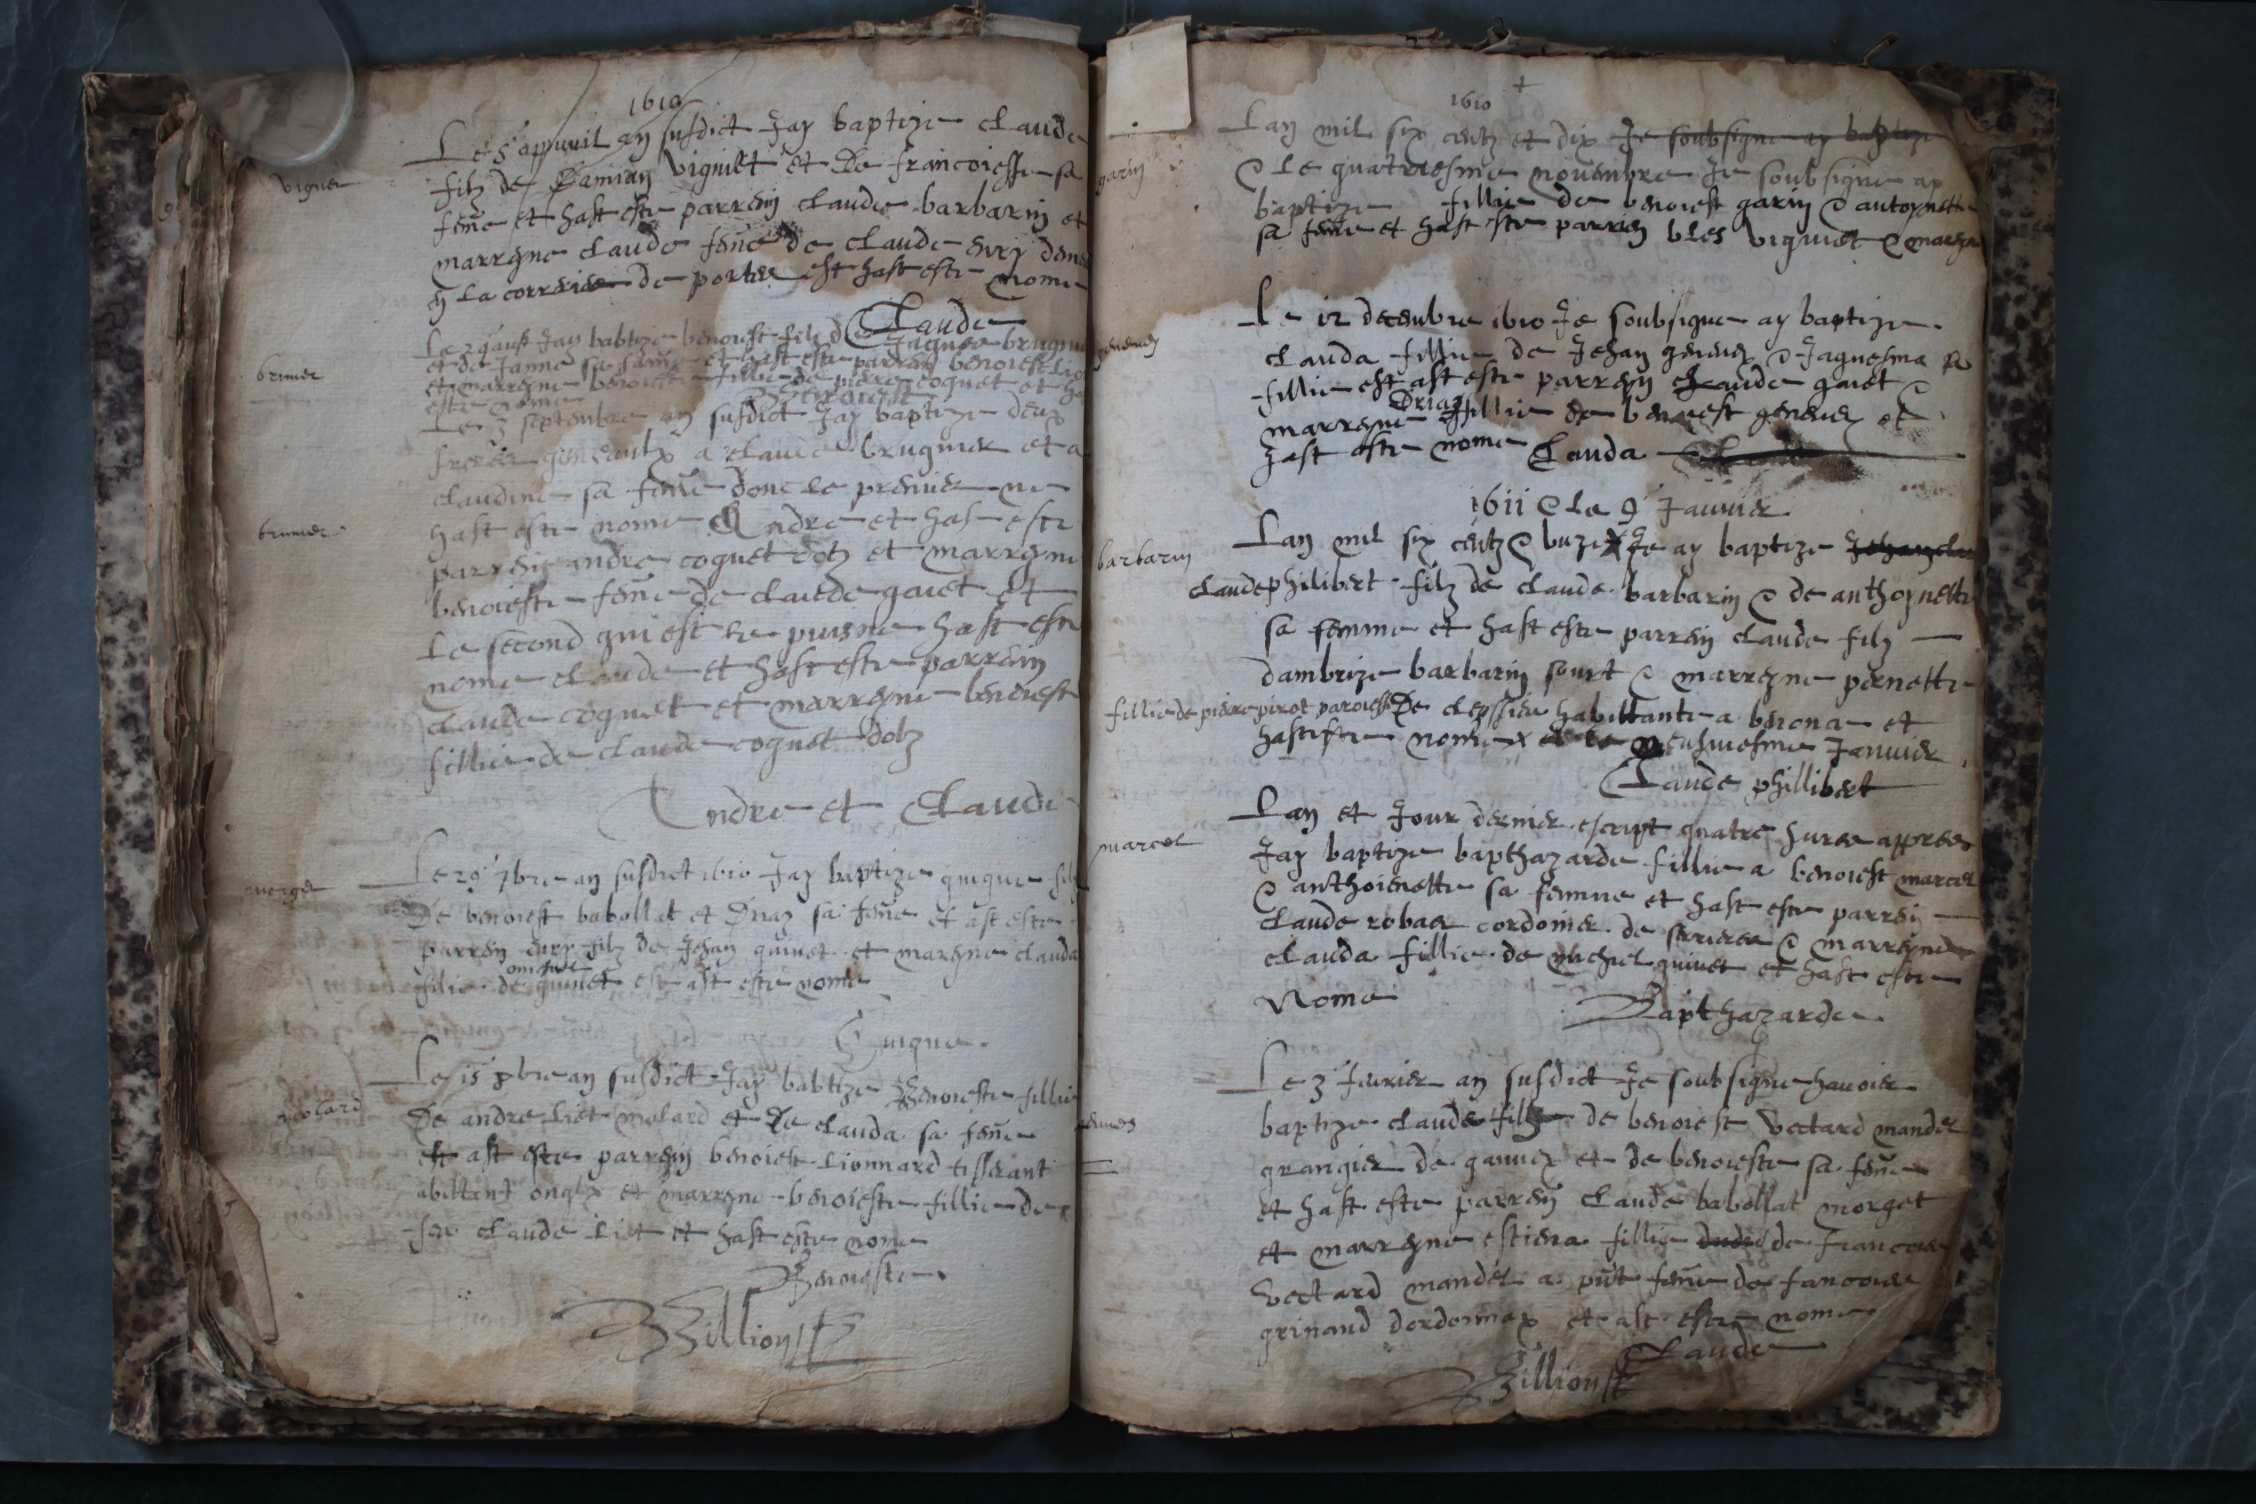 1610
Le 5 apvuril an susdict Jay baptize claude
vignier
filz de Damian vigniet et de francoiesse sa
feme et hast este parrein claude barbarin et
marreyne claude feme de claude
la correrie de portes est hast este nome
Claude
Le 29 aust Jay babtize benoiest filz de Jaques brugnie
et de Janne sa feme et hast este parrein benoiest
brunier
et marreyne benoieste fillie de pierre coquet et
este nome benoiest
Le 3 septembre an susdict Jay baptize deux
freres a claude brugnier et a
claudine sa feme donc le premier ne
hast este nome Andre et hast este
brunier
parrein andre coquet dotz et marreyne
benoieste feme de claude gaiet et
Le second qui est le puisne hast este
nome claude et hast este parrein
claude coquet et marreyne benoieste
fillie de claude coquet dotz
Andre et Claude
Le 29 7bre an susdict 1610 Jay baptize guigue filz
morget
De benoiest babollat et Driaz sa feme et ast este
parrein filz de Jehan guinet et mareyne clauda
filie de guinet est ast este nome
Guigue
Le 15 an susdict Jay babtize Benoieste fillie
molard
De andre liet molard et De clauda sa feme
ast este parrein benoiest lionnard tisserant
abittant et marreyne benoieste fillie de
feu claude liet et hast este nome
Benoieste
Billion
1610
Lan mil six centz et dix Je soubsigne ay baptize
garin
& le quatriesme novembre Je soubsigne ay
baptize fillie de benoiest garin & antoynette
sa feme et hast este parrien vigniet &
Le 12 decembre 1610 Je soubsigne ay baptize
genevez
clauda fillie de Jehan genevez & Jaquesma sa
fillie est ast este parrein Claude gaiet &
marreyne Driaz fillie de benoiest genevez et
hast este nome Clauda
1611 & le 9 Janvier
Lan mil six centz & unze Je ay baptize
barbarin
claude philibert filz de claude barbarin & de anthoynette
sa femme et hast este parrein claude filz
dambrize barbarin sourt & marreyne pernette
fillie de pierre pirot paroiesse De clessieu habittante a benona et
hast este nome le neufviesme Janvier
Claude phillibert
Lan et Jour dernier escript quatre hures appres
marcel
Jay baptize bapthazarde fillie a benoiest marcel
& anthoienette sa femme et hast este parrein
claude robaer cordonier de serrieres & marreyne
clauda fillie de michiel guinet et hast este
Nome Bapthazarde
Le 3 fevrier an susdict Je soubsigne havoier
baptize claude filz de benoiest vectard mandel
grangier de et de benoieste sa feme
et hast este parrein claude babollat morget
et marreyne estiena fillie de francois
vectard mandel a put feme de francois
grinand et ast este nome
Claude
Billion